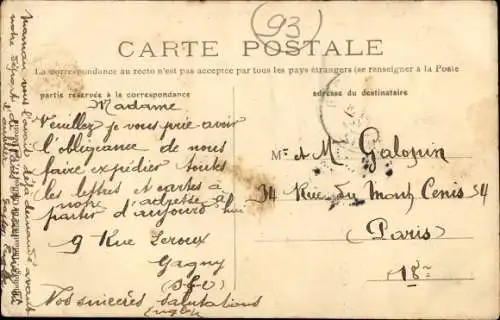 (93)
CARTE POSTALE
La correspondance au recto n'est pas acceptée par tous les pays étrangers (se renseigner à la Poste
partie réservée à la correspondance
adresse du destinataire
Madame
Veuillez je vous prie avoir
l'obligeance de nous
faire expédier toutes
les lettres et cartes à
notre adresse à
partir d'aujourd'hui
9 Rue Leroux
Gagny
(S-&-O)
Nos sincères salutations
Mr et M Galopin
34 Rue du Mont Cenis 54
(Paris)
18e
Maman vous l'avait déjà demandé avant
notre départ